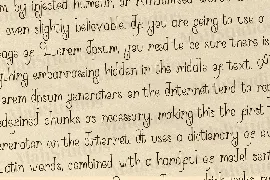 m by injected humour, or randomised word
even slightly believable. If you are going to use a
age of Lorem Ipsum, you need to be sure there is
thing embarrassing hidden in the middle of text.
orem Ipsum generators on the Internet tend to re
edefined chunks as necessary, making this the first
enerator on the Internet. It uses a dictionary of ov
Latin words, combined with a handful of model sent